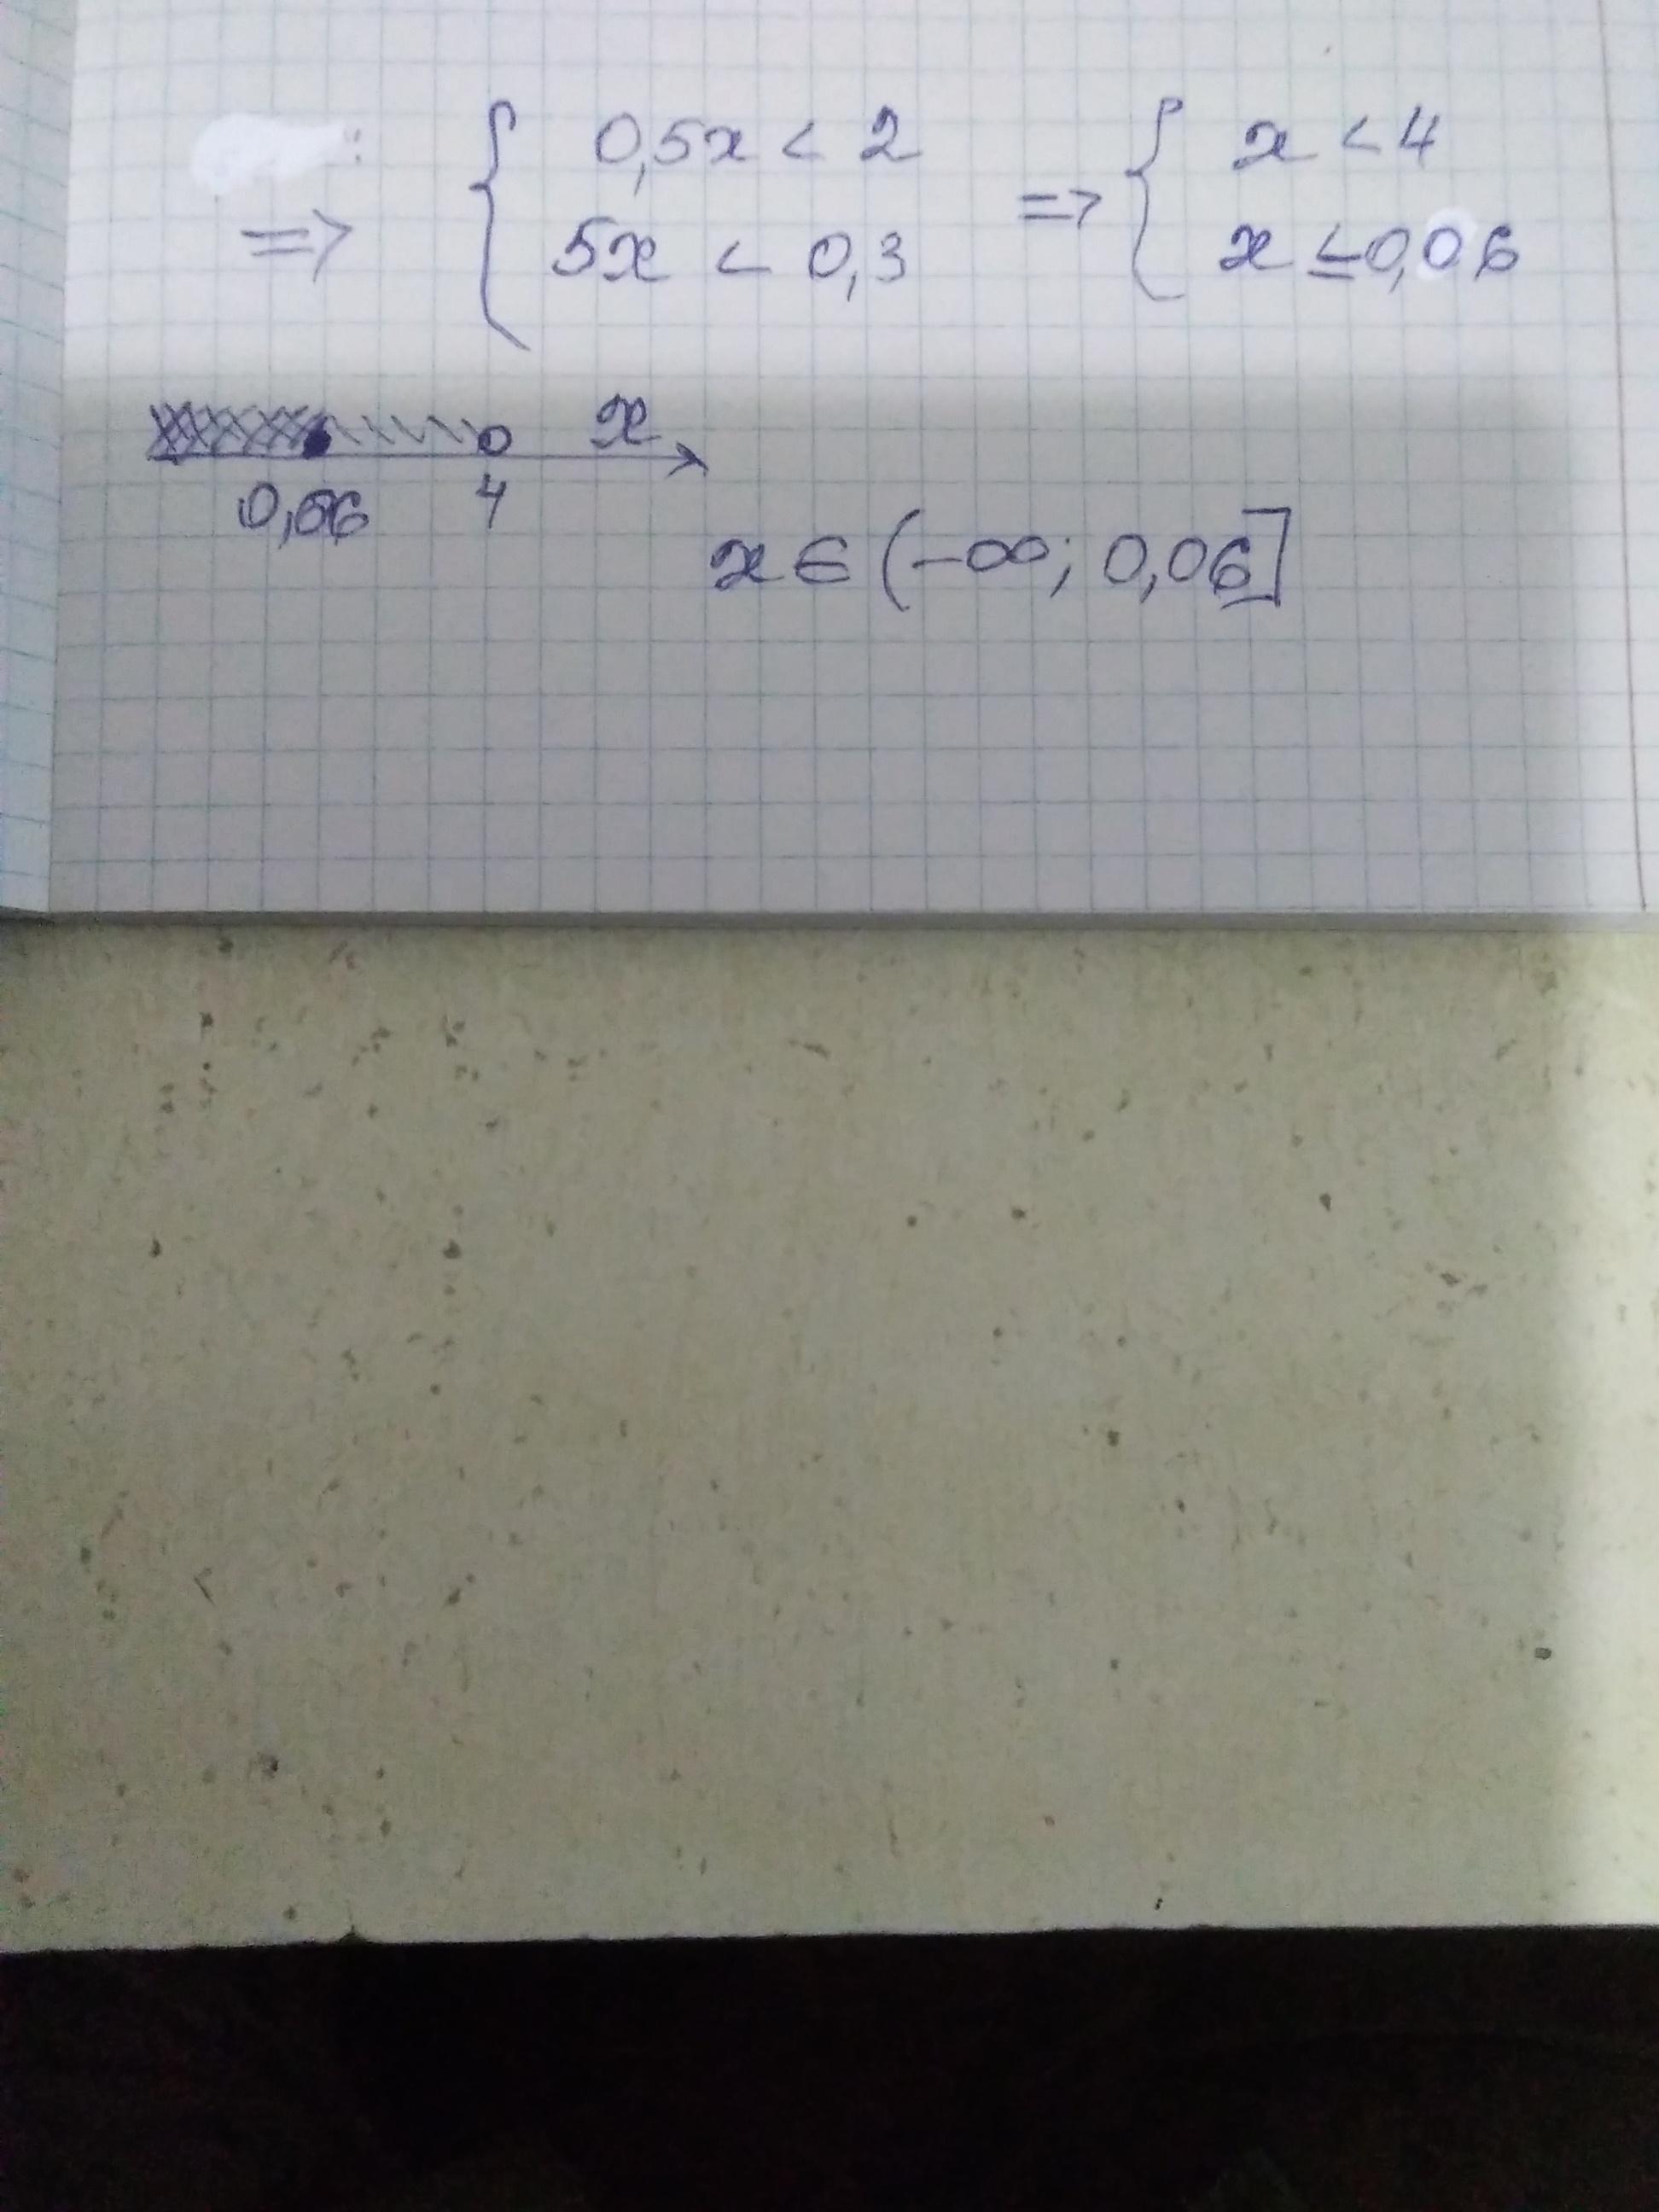 => { 0,5x < 2 => { x < 4
5x < 0,3 x ≤ 0,06
x
0,06 4
x ∈ (-∞; 0,06]